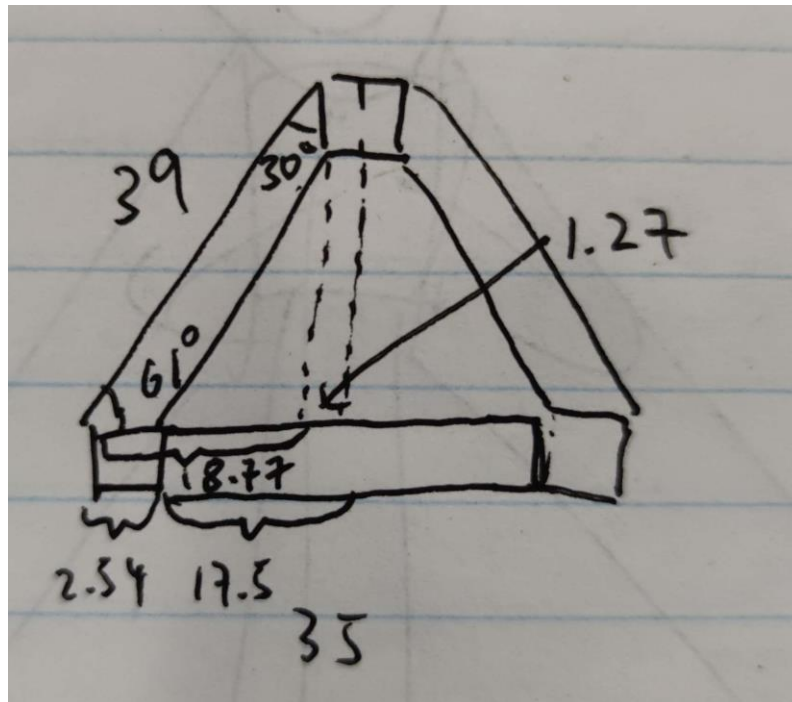 39
30°
1.27
61°
18.77
2.54
17.5
35